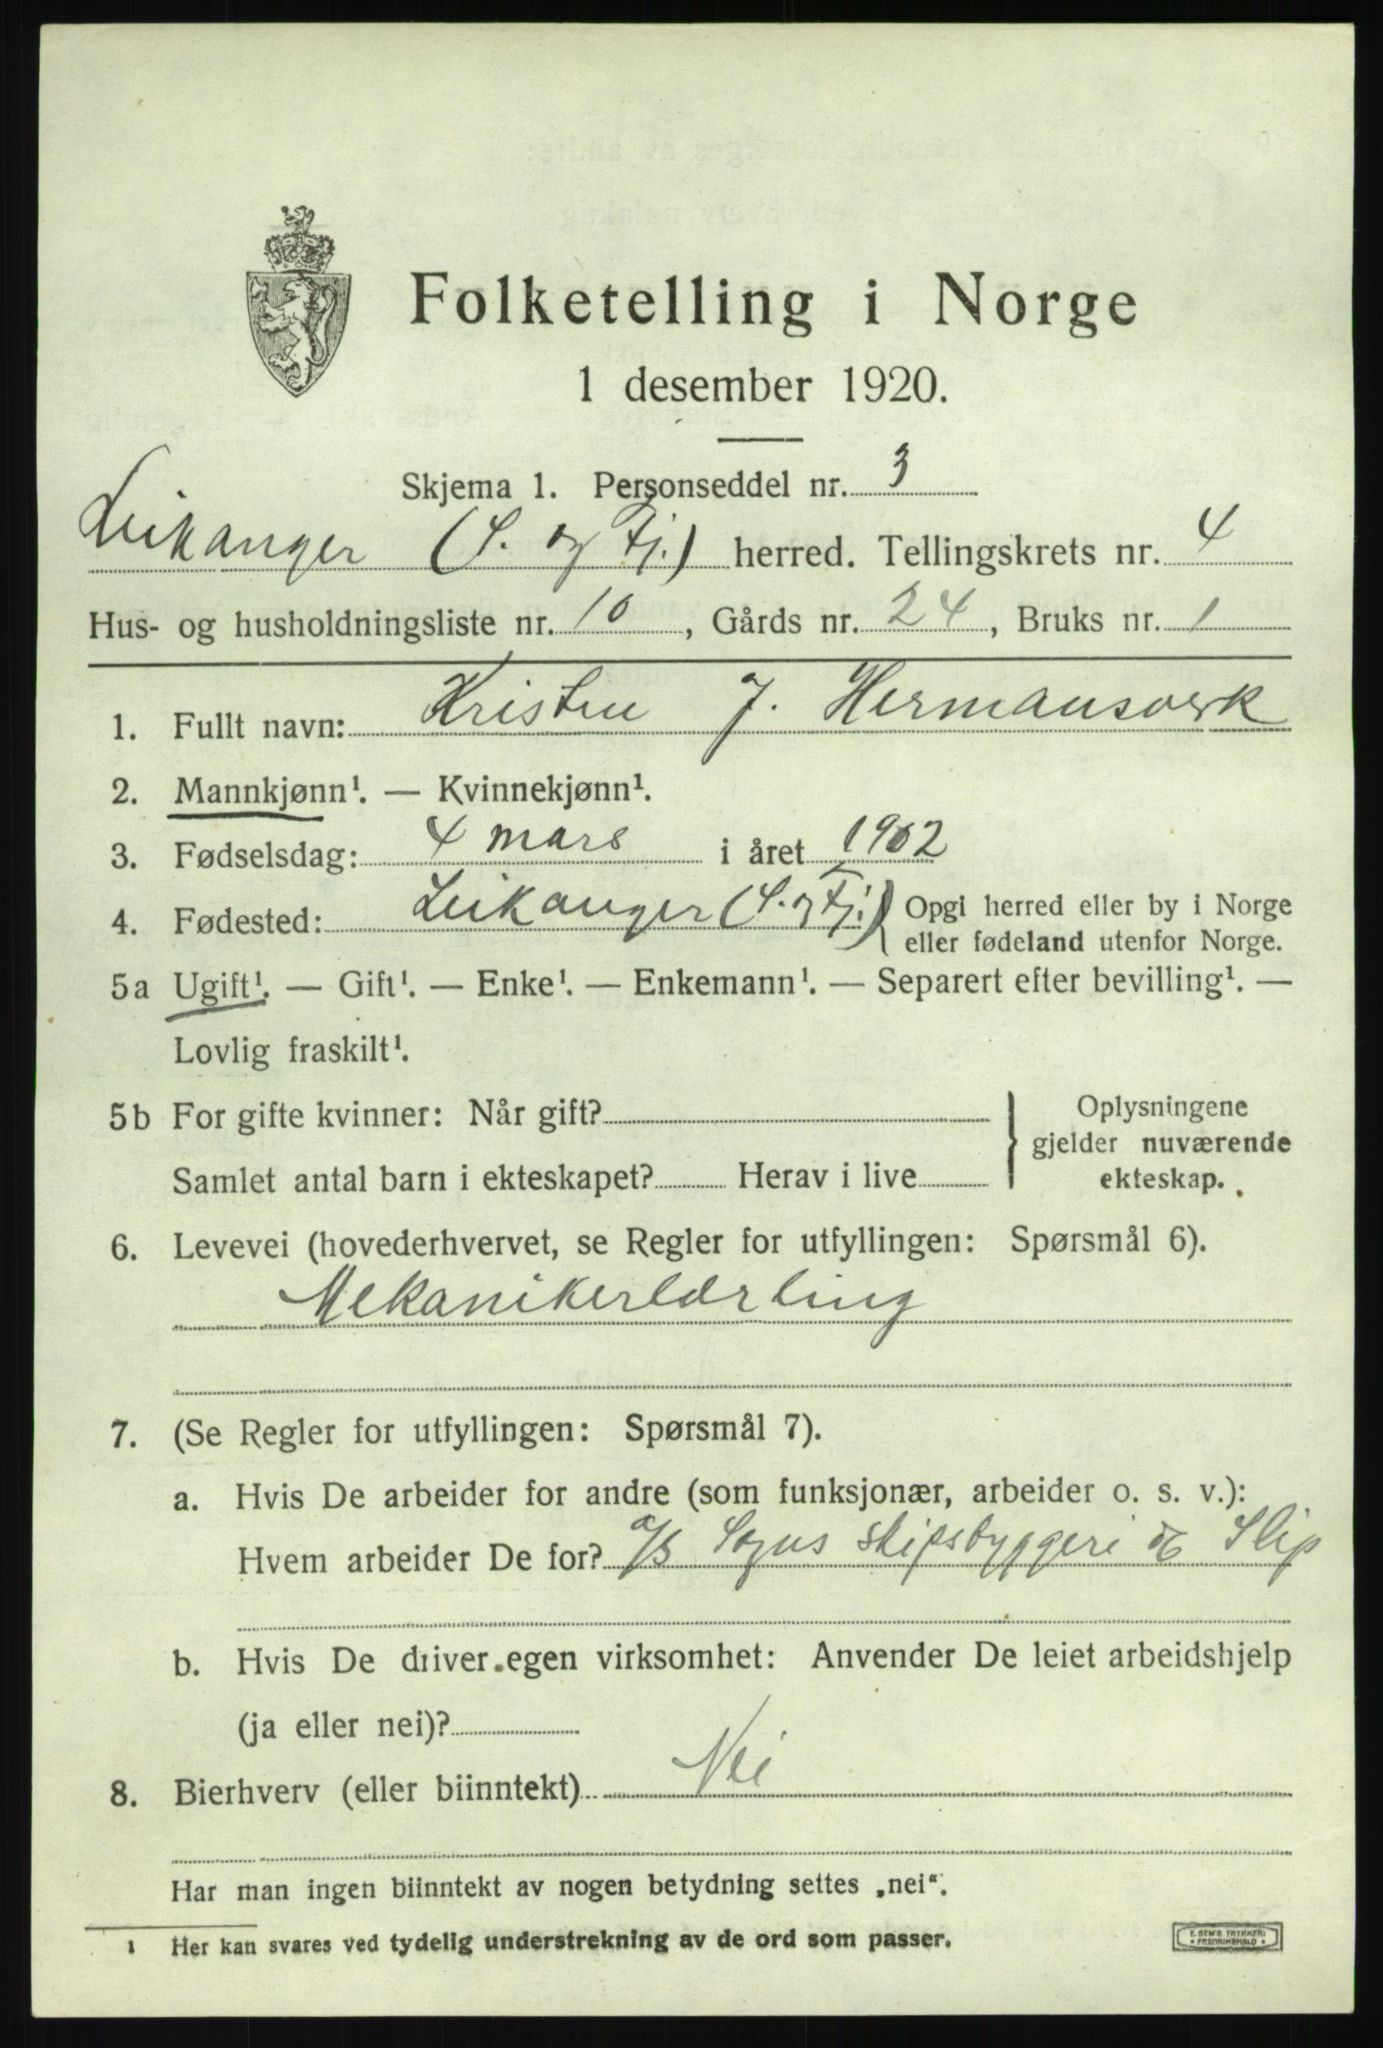 Folketelling i Norge
1 desember 1920.
Skjema 1. Personseddel nr. 3
Leikanger (S. og Fj.) herred. Tellingskrets nr. 4
Hus- og husholdningsliste nr. 10, Gårds nr. 24, Bruks nr. 1
1. Fullt navn: Kristen J. Hermansverk
2. Mannkjønn¹. — Kvinnekjønn¹.
3. Fødselsdag: 4 mars i året 1902
4. Fødested: Leikanger (S. og Fj.) Opgi herred eller by i Norge
eller fødeland utenfor Norge.
5a Ugift¹. — Gift¹. — Enke¹. — Enkemann¹. — Separert efter bevilling¹. —
Lovlig fraskilt¹.
5b For gifte kvinner: Når gift?
Samlet antal barn i ekteskapet? Herav i live
Oplysningene
gjelder nuværende
ekteskap.
6. Levevei (hovederhvervet, se Regler for utfyllingen: Spørsmål 6).
Mekanikerlærling
7. (Se Regler for utfyllingen: Spørsmål 7).
a. Hvis De arbeider for andre (som funksjonær, arbeider o. s. v.):
Hvem arbeider De for? A/S Sogns skipsbyggeri & Slip
b. Hvis De driver egen virksomhet: Anvender De leiet arbeidshjelp
(ja eller nei)?
8. Bierhverv (eller biinntekt) Nei
Har man ingen biinntekt av nogen betydning settes „nei“.
1 Her kan svares ved tydelig understrekning av de ord som passer.
E. SEM'S TRYKKERI
• FREDRIKSHALD •